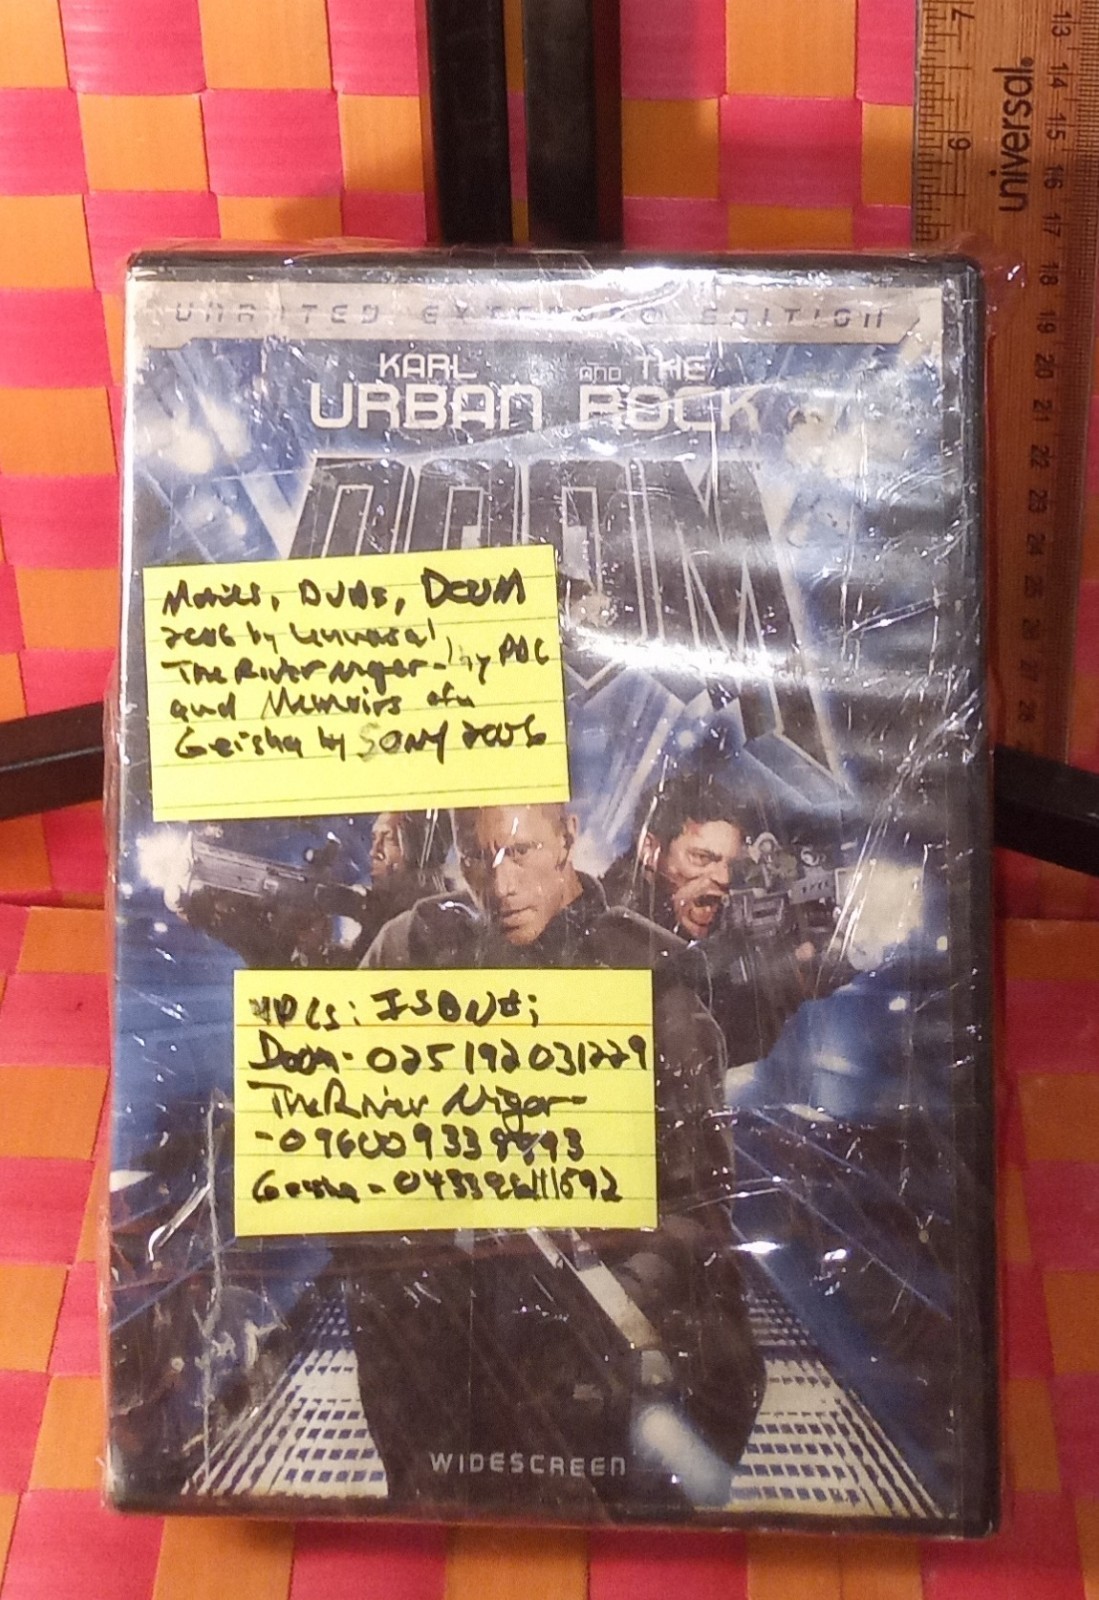 UNRATED EXTENDED EDITION
KARL AND THE
URBAN ROCK
DOOM
Movies, DVDs, DOOM
2006 by Universal
The River Niger - by
and Memoirs of a
Geisha by SONY 2006
UPCs: ISBN#;
Doom - 025192031229
The River Niger -
Geisha -
WIDESCREEN
universal
7
6
13
14
15
16
17
18
19
20
21
22
23
24
25
26
27
28